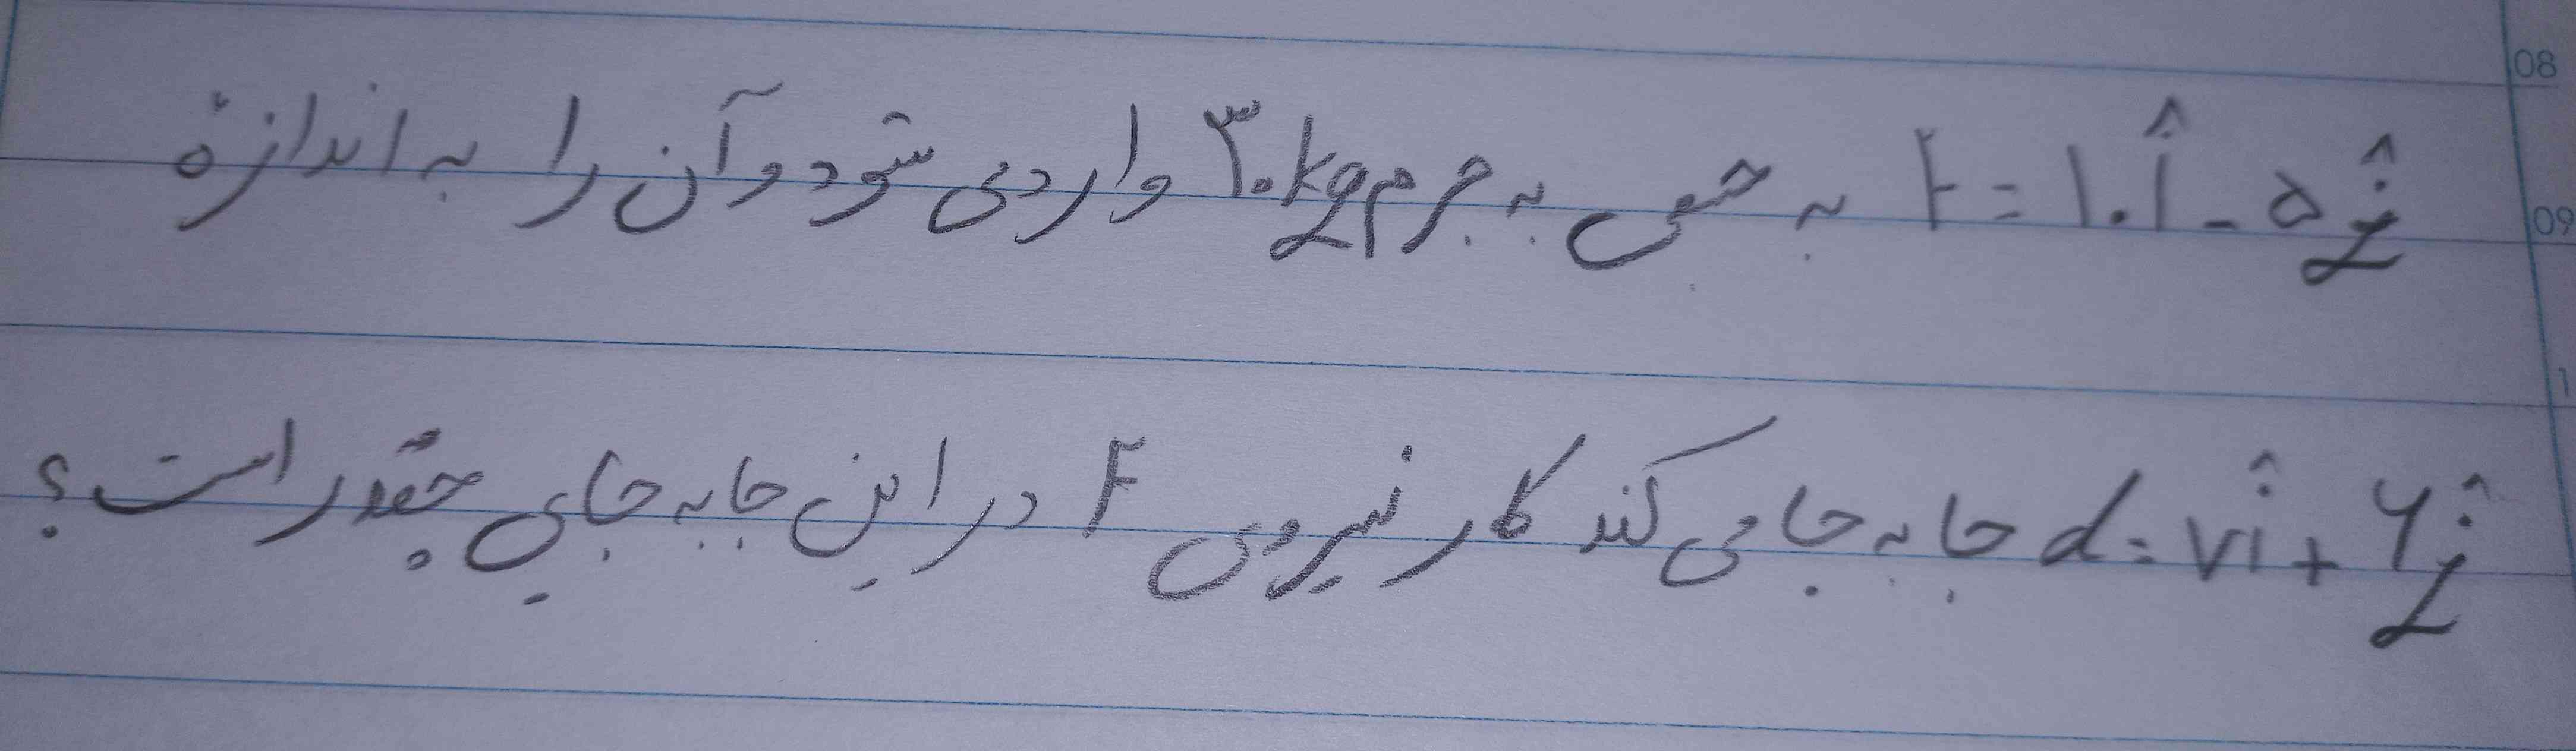 F = ۱۰î - ۵ĵ به جسمی به جرم ۳۰kg وارد می شود و آن را به اندازهٔ
d = ۷î + ۶ĵ جا به جا می کند کار نیروی F در این جا به جای چقدر است؟
08
09
1